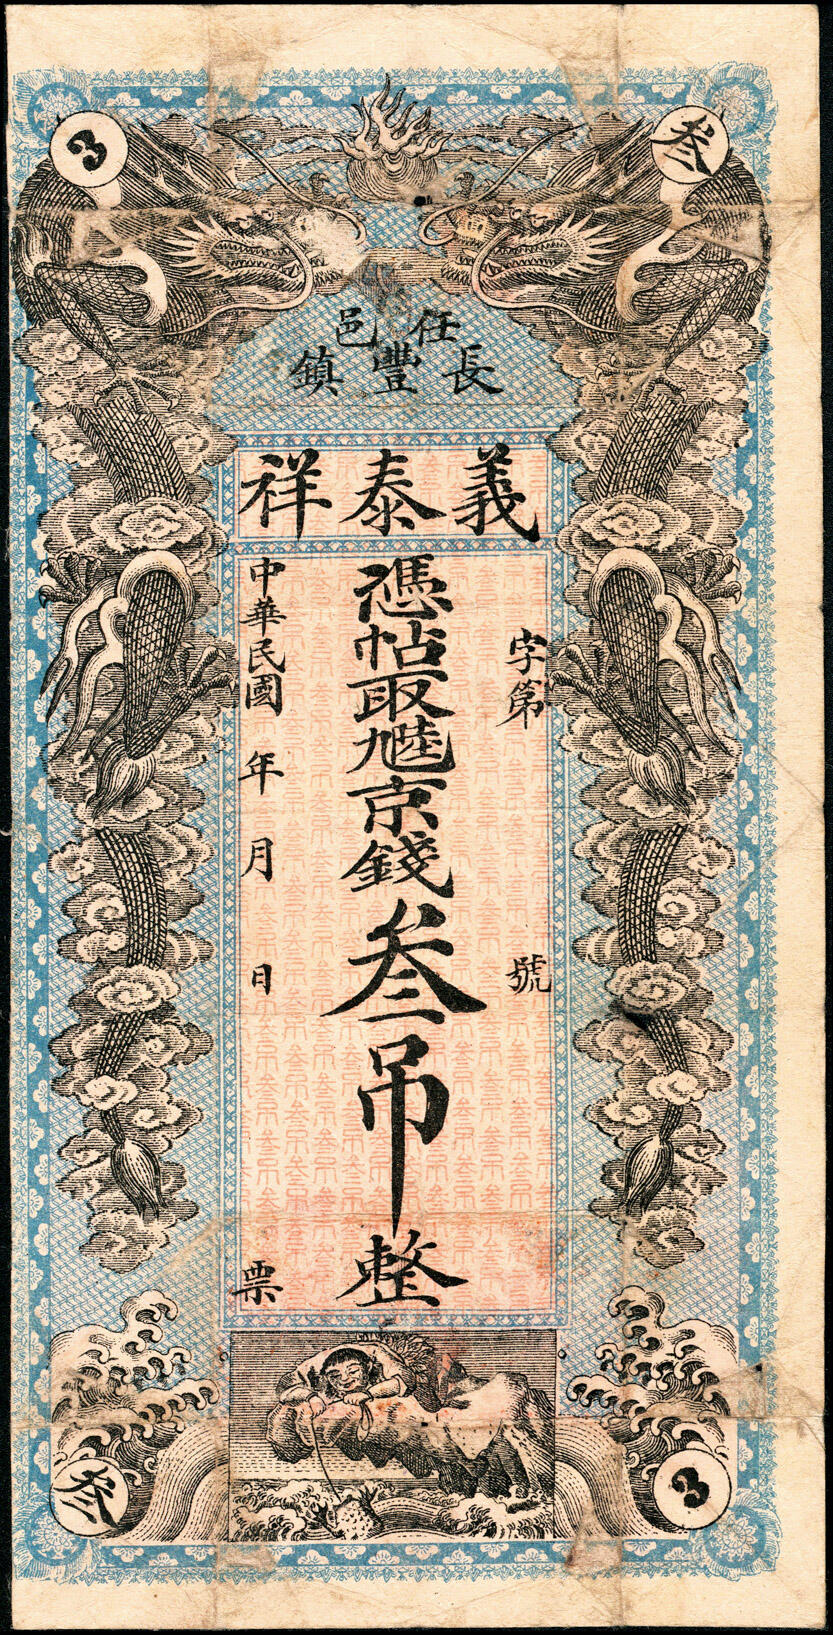 3
叁
任邑
長豐鎮
義泰祥
字第 號
憑帖取
京錢叁吊整
中華民國 年 月 日 票
叁
3